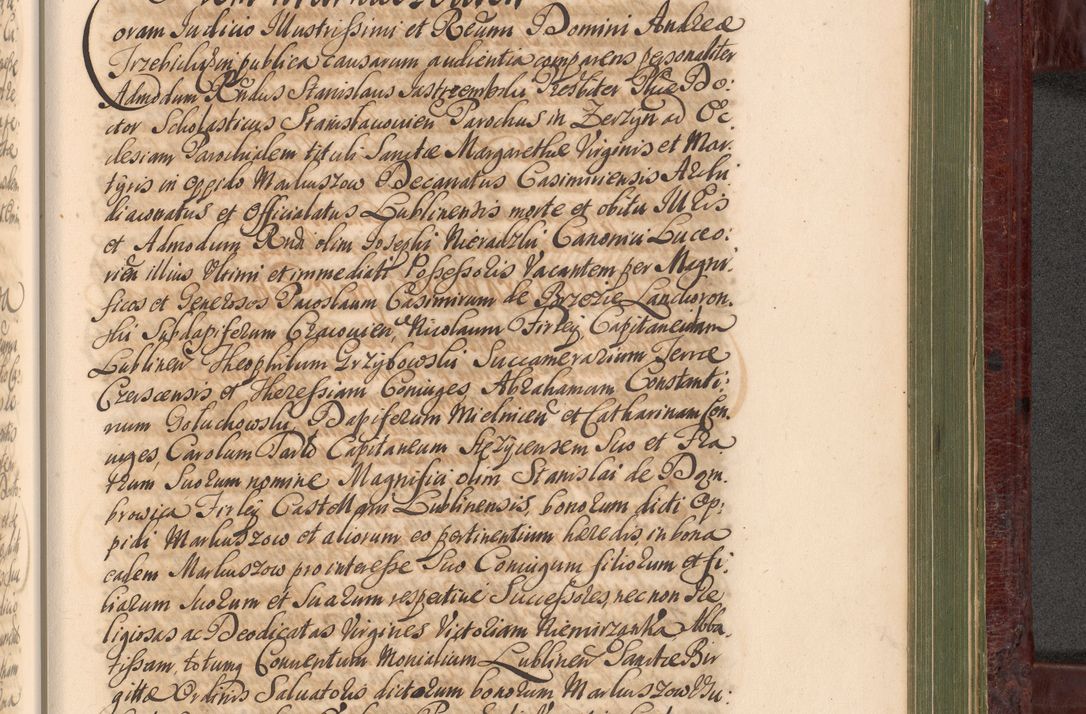 oram Judicio Illustrissimi et Rdun Domini Andreæ
Trzebicki in publica causarum audientia comparens personaliter
Admodum Rndus Stanislaus Jastrzembski Præsbiter Phiæ Do:
ctor Scholasticus Stanislauouien Parochus in Zerzyn ad Ec,
clesiam Parochialem tituli Sanctæ Margarethæ Virginis et Mar,
tyris in oppido Markuszow Decanatus Casimiriensis Archi
diaconatus et Officialatus Lublinensis morte et obitu Illris
et Admodum Rndi olim Josephi Nieradzki, Canonici Luceo:
rien illius Ultimi et immediati Possessoris Vacantem per Magni:
ficos et Generosos Paroslaum Casimirum de Brzezie Lanckoron,
ski Subdapiferum Cracouien, Nicolaum Firley Capitaneum
Lublinen Theophilum Grzybowski Succamerarium Terræ
Czerscensis et Theressiam Coniuges Abrahamum Constanti:
num Goluchowski, Dapiferum Mielnicen et Catharinam Con,
iuges, Carolum Tarło Capitaneum Stezycensem Suo et Fra
trum Suorum nomine Magnifici olim Stanislai de Dom,
browica Firley Castellani Lublinensis, bonorum dicti Op,
pidi Markuszow et aliorum eo pertinentium hæredis, in bona
eadem Markuszow pro interesse Suo Coniugum filiorum et fi,
liarum Suorum et Suarum respectiue Successores, nec non Re
ligiosas ac Deodicatas Virgines Victoriam Niemirzanka Abba,
tissam totumq Conuentum Monialium Lublinen Sanctæ Bri
gittæ Ordinis Saluatoris dictorum bonorum Markuszow Usu: